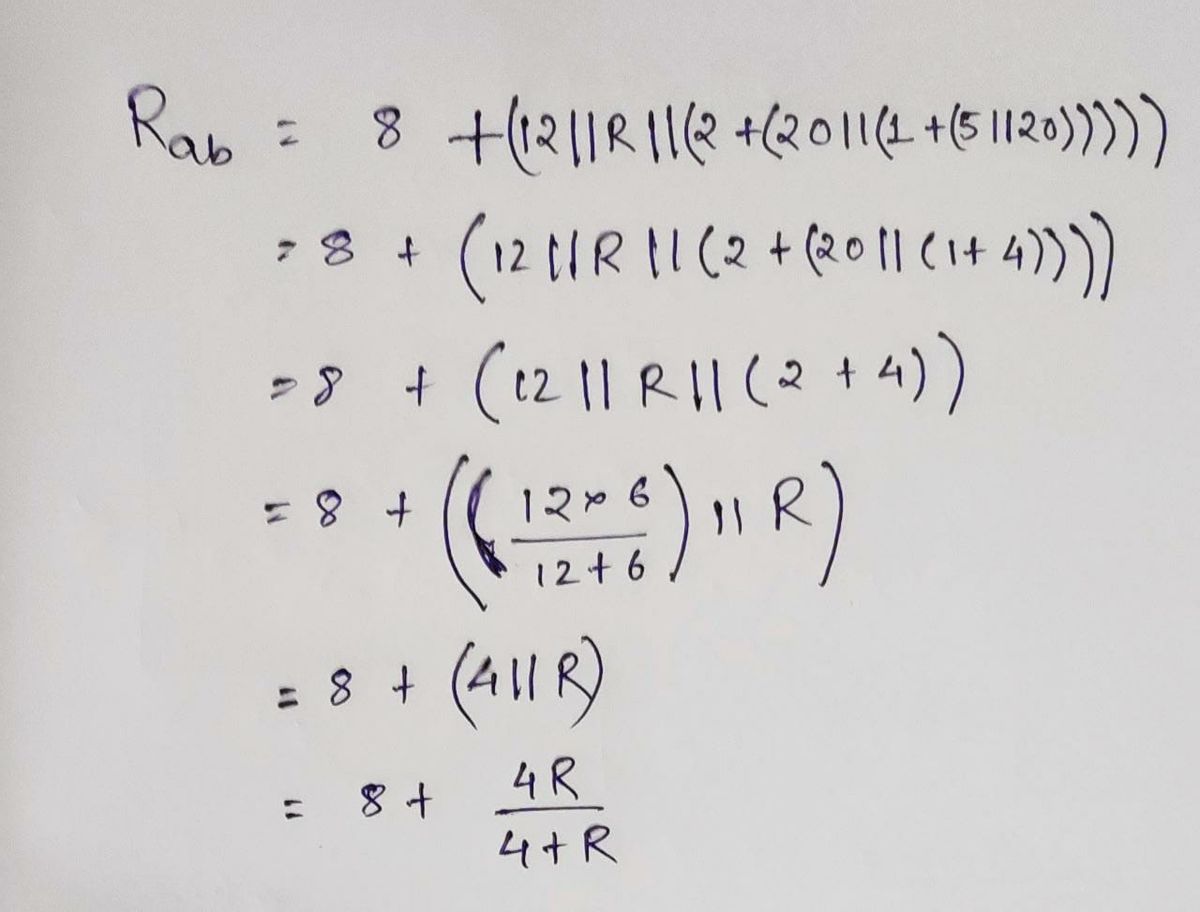 Rab = 8 + (12 || R || (2 + (20 || (1 + (5 || 20)))))
= 8 + (12 || R || (2 + (20 || (1 + 4))))
= 8 + (12 || R || (2 + 4))
= 8 + ((12 × 6 / 12 + 6) || R)
= 8 + (4 || R)
= 8 + 4R / 4 + R